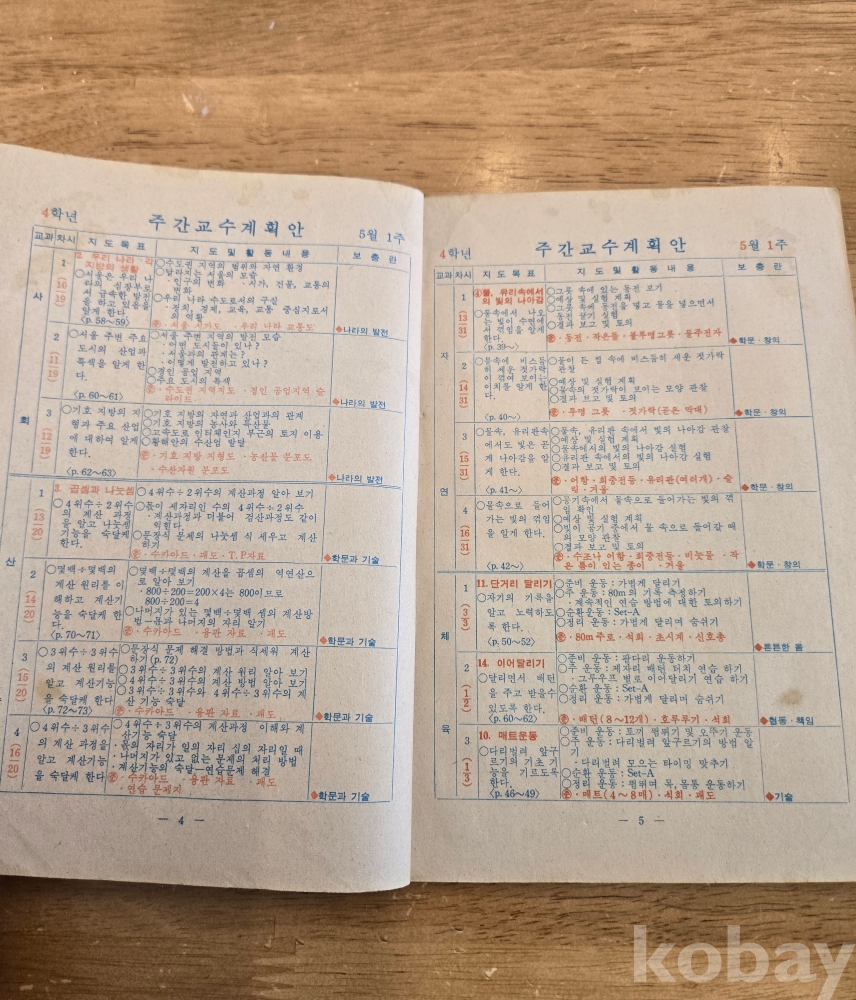 4학년
주간교수계획안
5월 1주
교과 차시 지도목표 지도및활동내용 보충란
사회
1
(10/19)
2. 우리 나라 각 지방의 생활
○서울은 우리 나라의 심장부로서 급속한 발전을 하고 있음을 알게 한다.
(p.58~59)
○수도권 지역의 범위와 자연 환경
○달라지는 서울의 모습
·인구의 변화 ·시가, 건물, 교통의 변화
○우리 나라 수도로서의 구실
·정치, 경제, 교육, 교통 중심지로서의 역할
·서울 시가도 ·우리 나라 교통도
◆나라의 발전
2
(11/19)
○서울 주변 주요 도시의 산업과 특색을 알게 한다.
(p.60~61)
○서울 주변 지역의 발전 모습
·어떤 도시들이 있나?
·서울과의 관계는?
·어떻게 발전하고 있나?
○경인 공업 지역
○주요 도시의 특색
·수도권 지역지도 ·경인 공업지역 슬라이드
◆나라의 발전
3
(12/19)
○기호 지방의 지형과 주요 산업에 대하여 알게 한다.
(p.62~63)
○기호 지방의 자연과 산업과의 관계
○기호 지방의 농사와 특산물
○고속도로 인터체인지 부근의 토지 이용
○황해안의 수산업 발달
·기호 지방 지형도 ·농산물 분포도
·수산자원 분포도
◆나라의 발전
산
1
(13/20)
3. 곱셈과 나눗셈
○4위수÷2위수의 계산 과정을 알고 나눗셈 기능을 숙달케 한다.
○4위수÷2위수의 계산과정 알아 보기
○몫이 세자리인 수의 4위수÷2위수
·계산과정과 더불어 검산과정도 같이 익힌다.
○문장식 문제의 나눗셈 식 세우고 계산하기
·수카아드·괘도·T.P자료
◆학문과 기술
2
(14/20)
○몇백÷몇백의 계산 원리를 이해하고 계산기능을 숙달케 한다.
(p.70~71)
○몇백÷몇백의 계산을 곱셈의 역연산으로 알아 보기
·800÷200=200×4는 800이므로
800÷200=4
○나머지가 있는 몇백÷몇백 셈의 계산방법—몫과 나머지의 자리 알기
·수카아드 ·융판 자료 ·괘도
◆학문과 기술
3
(15/20)
○3위수÷3위수의 계산 원리를 알고 계산기능을 숙달케 한다.
(p.72~73)
○문장식 문제 해결 방법과 식세워 계산하기(p.72)
○3위수÷3위수의 계산 원리 알아 보기
○4위수÷3위수의 계산 방법 알아 보기
○3위수÷3위수와 4위수÷3위수의 계산 기능 숙달
·수카아드 ·융판 자료 ·괘도
◆학문과 기술
4
(16/20)
○4위수÷3위수의 계산 과정을 알고 계산기능을 숙달케 한다
○4위수÷3위수의 계산과정 이해와 계산기능 숙달
·몫의 자리가 일의 자리 십의 자리일 때
·나머지가 있고 없는 문제의 처리 방법
·계산기능의 숙달—연습문제 해결
·수카아드 ·융판 자료 ·괘도
·연습 문제지
◆학문과 기술
— 4 —
4학년
주간교수계획안
5월 1주
교과 차시 지도목표 지도및활동내용 보충란
자연
1
(13/31)
④물, 유리속에서의 빛의 나아감
○물속에서 나오는 빛이 수면에서 꺾임을 알게 한다.
(p.39~)
○그릇 속에 있는 동전 보기
○예상 및 실험 계획
○그릇 속에 동전을 넣고 물을 넣으면서 동전 찾기 실험
○결과 보고 및 토의
·동전·작은돌·불투명그릇·물주전자
◆학문·창의
2
(14/31)
○물속에 비스듬히 세운 젓가락이 꺾여 보이는 이치를 알게 한다.
(p.40~)
○물이 든 컵 속에 비스듬히 세운 젓가락 관찰
○예상 및 실험 계획
○물속의 젓가락이 보이는 모양 관찰
○결과 보고 및 토의
·투명 그릇 ·젓가락(곧은 막대)
◆학문·창의
3
(15/31)
○물속, 유리판속에서도 빛은 곧게 나아감을 알게 한다.
(p.41~)
○물속, 유리판 속에서의 빛의 나아감 관찰
○예상 및 실험 계획
○물속에서의 빛의 나아감 실험
○유리판 속에서의 빛의 나아감 실험
○결과 보고 및 토의
·어항·회중전등·유리판(여러개)·슬릿·거울
◆학문·창의
4
(16/31)
○물속으로 들어가는 빛의 꺾임을 알게 한다.
(p.42~)
○공기속에서 물속으로 들어가는 빛의 꺾임 확인
○예상 및 실험 계획
○빛이 공기 중에서 물 속으로 들어갈 때의 모양 관찰
○결과 보고 및 토의
·수조나 어항·회중전등·비눗물·작은 틈이 있는 종이 ·거울
◆학문·창의
체육
1
(3/3)
11. 단거리 달리기
○자기의 기록을 알고 노력하도록 한다.
(p.50~52)
○준비 운동: 가볍게 달리기
○주 운동: 80m의 기록 측정하기
·계속적인 연습 방법에 대한 토의하기
○순환운동: Set-A
○정리 운동: 가볍게 달리며 숨쉬기
·80m 주로·석회·초시계·신호총
◆튼튼한 몸
2
(1/2)
14. 이어달리기
○달리면서 배턴을 주고 받을수 있도록 한다.
(p.60~62)
○준비 운동: 팔다리 운동하기
○주 운동: 제자리 배턴 터치 연습 하기
·그루우프 별로 이어달리기 연습 하기
○순환 운동: Set-A
○정리 운동: 가볍게 달리며 숨쉬기
·배턴(8~12개)·호루루기·석회
◆협동·책임
3
(1/3)
10. 매트운동
○다리벌려 앞구르기의 기초 기능을 기르도록 한다.
(p.46~49)
○준비 운동: 토끼 뜀뛰기 및 오뚜기 운동
○주 운동: 다리벌려 앞구르기의 방법 알기
·다리벌려 모으는 타이밍 맞추기
○순환 운동: Set-A
○정리 운동: 뜀뛰며 목, 몸통 운동하기
·매트(4~8매)·석회·괘도
◆기술
— 5 —
kobay